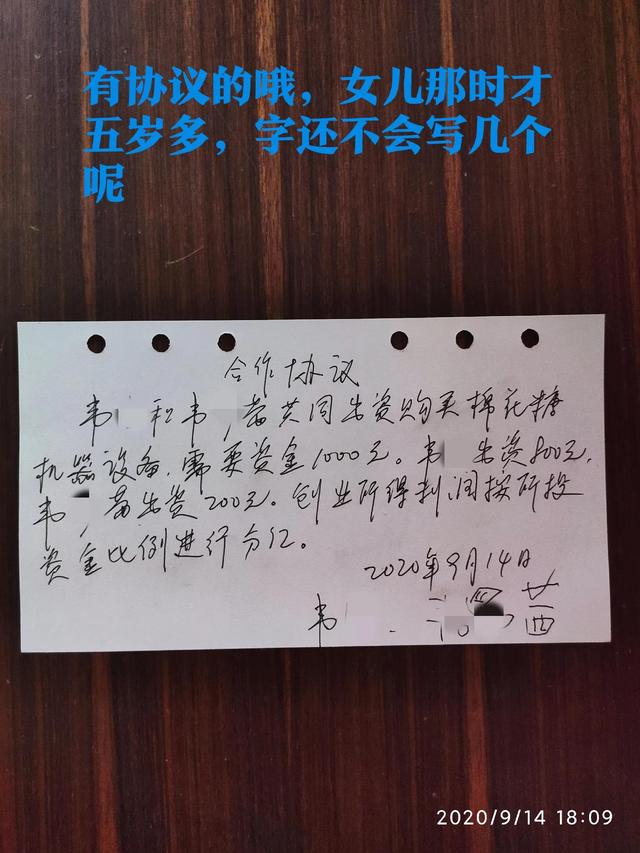 有协议的哦，女儿那时才
五岁多，字还不会写几个
呢
合作协议
韦 和韦 茜共同出资购买棉花糖
机器设备，需要资金1000元。韦 出资800元，
韦 茜出资200元。创业所得利润按所投
资金比例进行分红。
2020年9月14日
韦 茜
2020/9/14 18:09